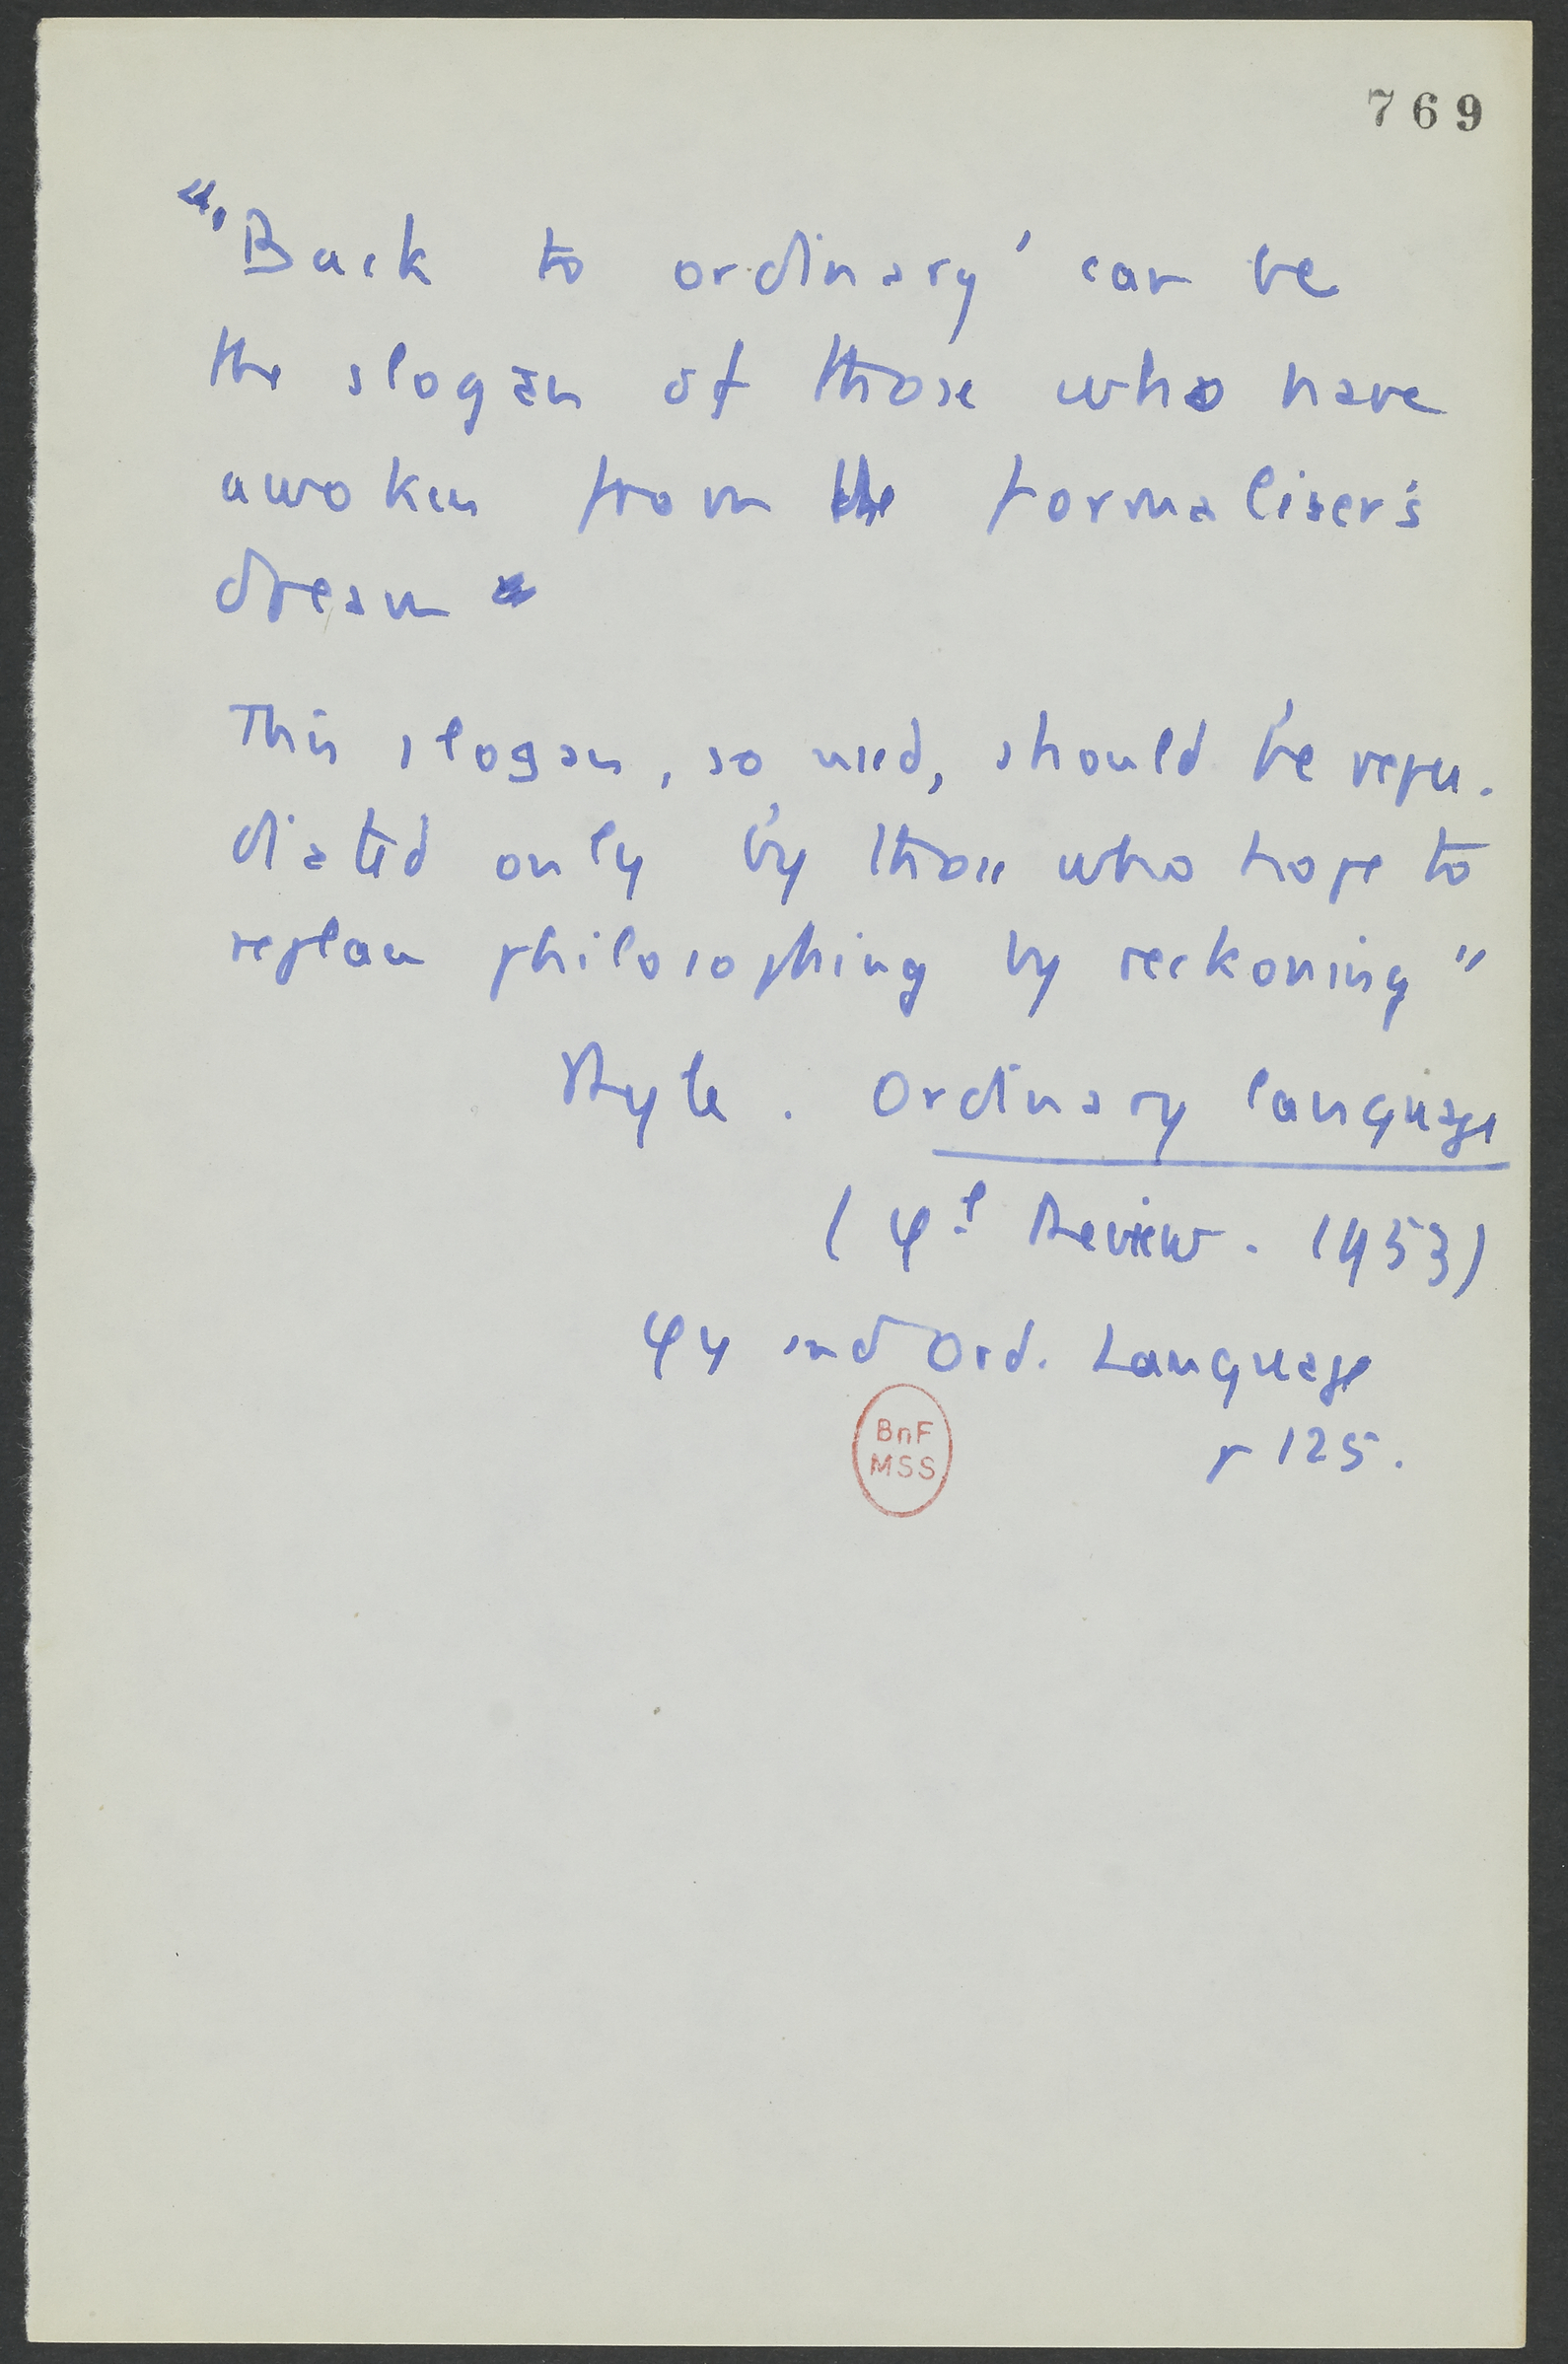 769
"'Back to ordinary' can be
the slogan of those who have
awoken from the formaliser's
dream
This slogan, so used, should be repu-
diated only by those who hope to
replace philosophing by reckoning"
Ryle. Ordinary language
(φal Review. 1953)
φy and Ord. Language
p 125.
BnF
MSS